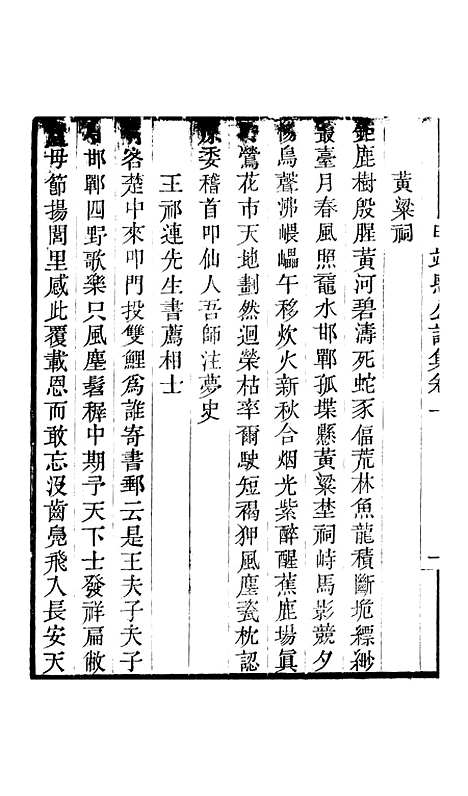 申端愍公詩集卷一
黃粱祠
鉅鹿樹殷腥黃河碧濤死蛇豕偪荒林魚龍積斷垝縹緲
叢臺月春風照黿水邯鄲孤堞懸黃粱塋祠峙馬影競夕
陽鳥聲沸㟴巋午移炊火新秋合烟光紫醉醒蕉鹿場眞
鶯花市天地劃然迴榮枯率爾駛短褐狎風塵瓷枕認
委稽首叩仙人吾師注夢史
王祁連先生書薦相士
客楚中來叩門投雙鯉爲誰寄書郵云是王夫子夫子
邯鄲四野歌樂只風塵髫穉中期予天下士發祥扁敝
毋節揚閭里感此覆載恩而敢忘沒齒鳧飛入長安天